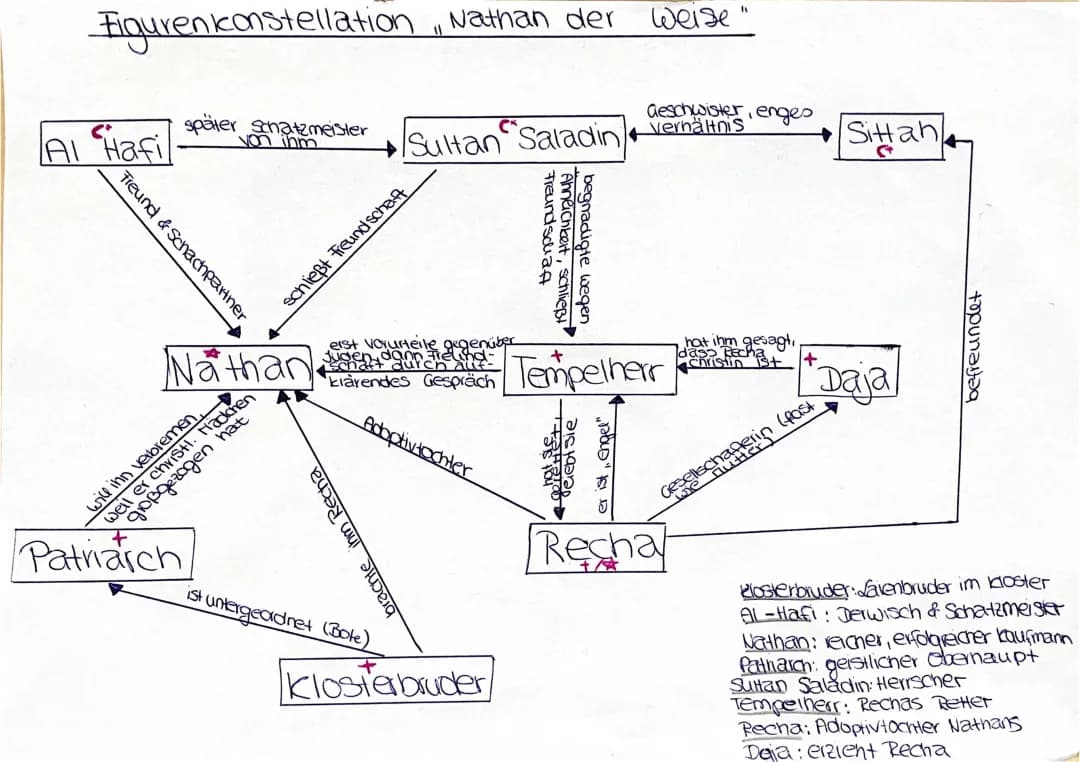 Figurenkonstellation „Nathan der Weise"
Al Hafi
später Schatzmeister
von ihm
Sultan Saladin
Geschwister, enges
verhältnis
Sittah
Freund & Schachpartner
schließt Freundschaft
begnadigte wegen
Ähnlichkeit, schließt
Freundschaft
befreundet
Nathan
erst Vorurteile gegenüber
Juden, dann Freund-
schaft durch auf-
klärendes Gespräch
Tempelherr
hat ihm gesagt,
dass Recha
Christin ist
Daja
will ihn verbrennen,
weil er christl. Mädchen
großgezogen hat
brachte ihm Recha
Adoptivtochter
hat sie
gerettet,
liebt sie
er ist „Engel"
Gesellschafterin (fast
wie Mutter)
Patriarch
Recha
ist untergeordnet (Bote)
Klosterbruder
Klosterbruder: Laienbruder im Kloster
Al-Hafi: Derwisch & Schatzmeister
Nathan: reicher, erfolgreicher Kaufmann
Patriarch: geistlicher Oberhaupt
Sultan Saladin: Herrscher
Tempelherr: Rechas Retter
Recha: Adoptivtochter Nathans
Daja: erzieht Recha